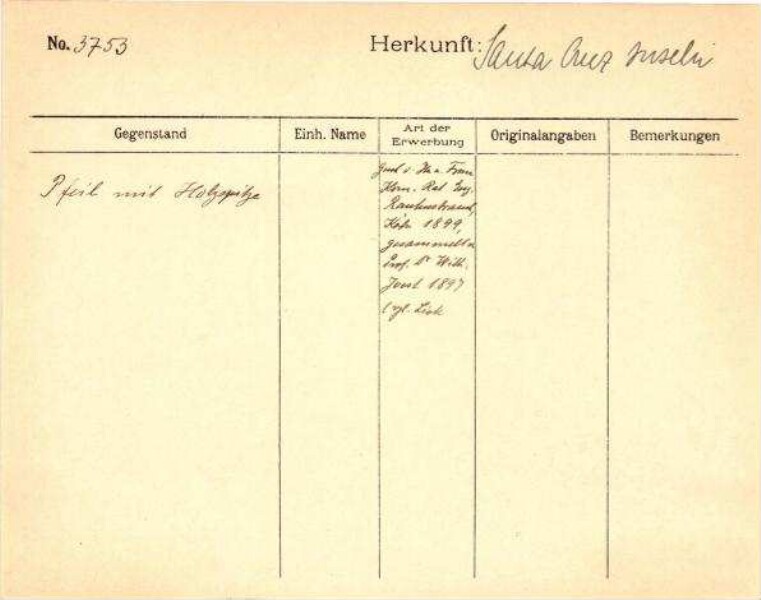 No. 3753
Herkunft: Santa Cruz Inseln
Gegenstand
Einh. Name
Art der
Erwerbung
Originalangaben
Bemerkungen
Pfeil mit Holzspitze
Gesch. v. Frau
Kom. Rat Eug.
Rautenstrauch,
Köln 1899,
gesammelt v.
Prof. Dr Wilh.
Joest 1897
(vgl. Liste